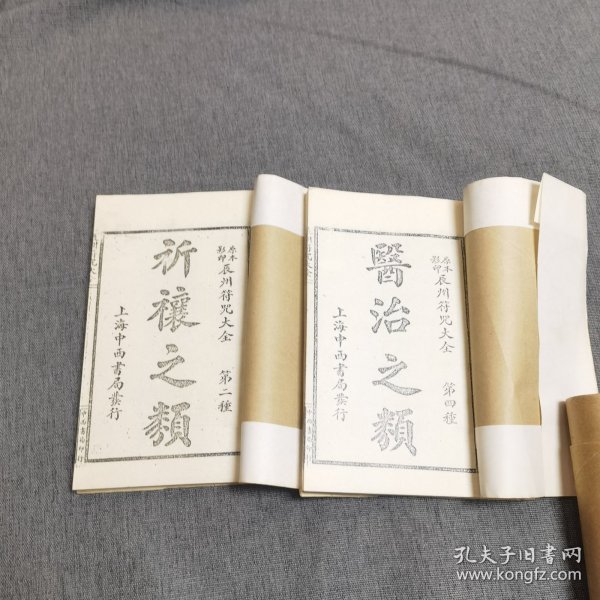 原本影印辰州符咒大全 第二種
祈禳之類
上海中西書局發行
原本影印辰州符咒大全 第四種
醫治之類
上海中西書局發行
孔夫子旧书网
www.kongfz.com